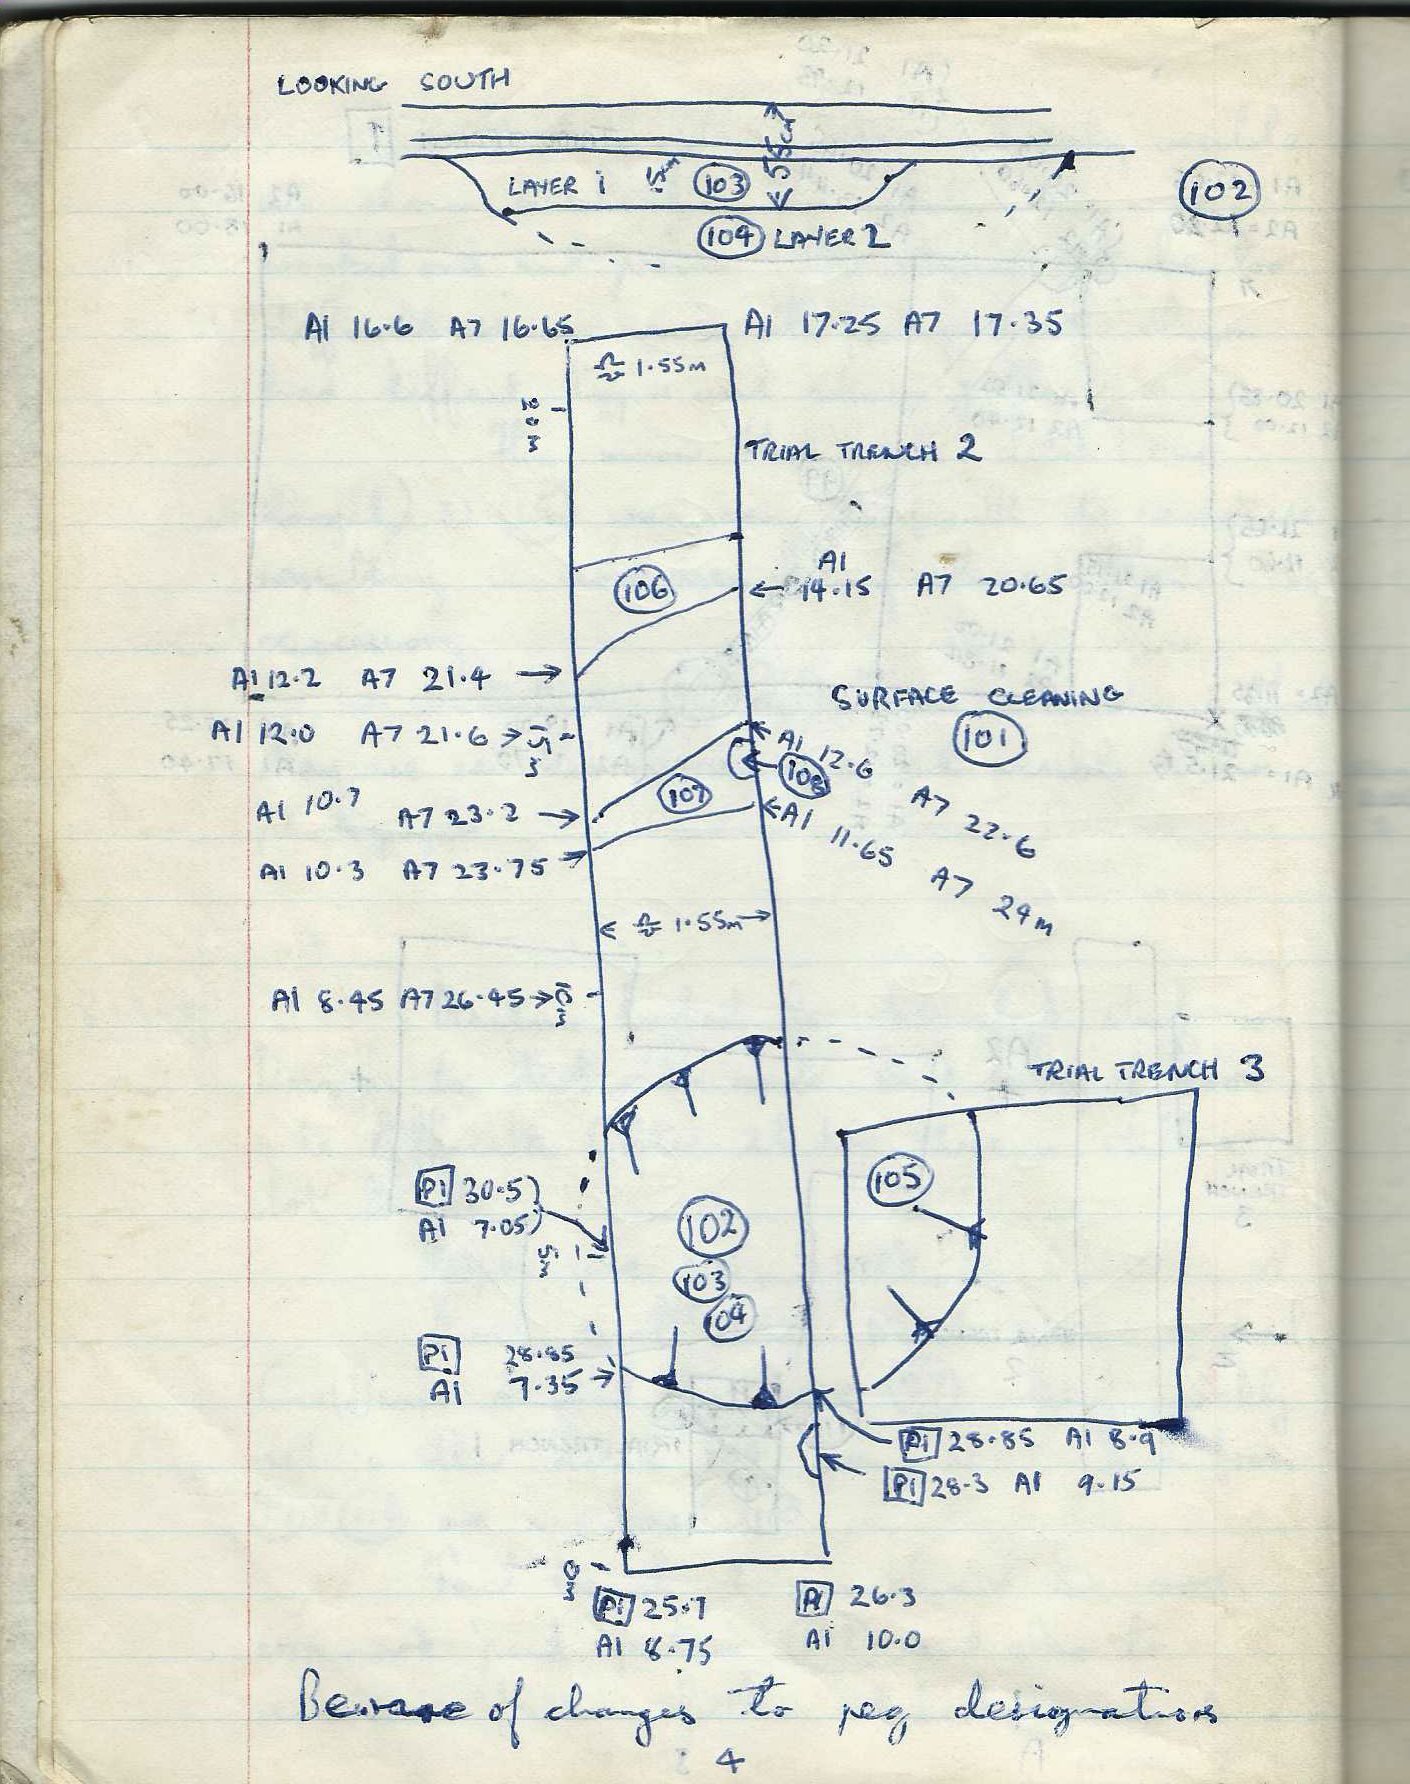 LOOKING SOUTH
55cm
LAYER 1 5m 103
102
104 LAYER 2
A1 16.6 A7 16.65
A1 17.25 A7 17.35
≏ 1.55m
20m
TRIAL TRENCH 2
106
A1
14.15 A7 20.65
A1 12.2 A7 21.4
SURFACE CLEANING
101
A1 12.0 A7 21.6
15m
A1 12.6 A7 22.6
108
107
A1 10.7 A7 23.2
A1 11.65 A7 24m
A1 10.3 A7 23.75
≏ 1.55m
A1 8.45 A7 26.45
10m
TRIAL TRENCH 3
105
P1 30.5
A1 7.05
5m
102
103
104
P1 28.85
A1 7.35
P1 28.85 A1 8.9
P1 28.3 A1 9.15
0m
P1 25.7
A1 8.75
P1 26.3
A1 10.0
Beware of changes to peg designations
4